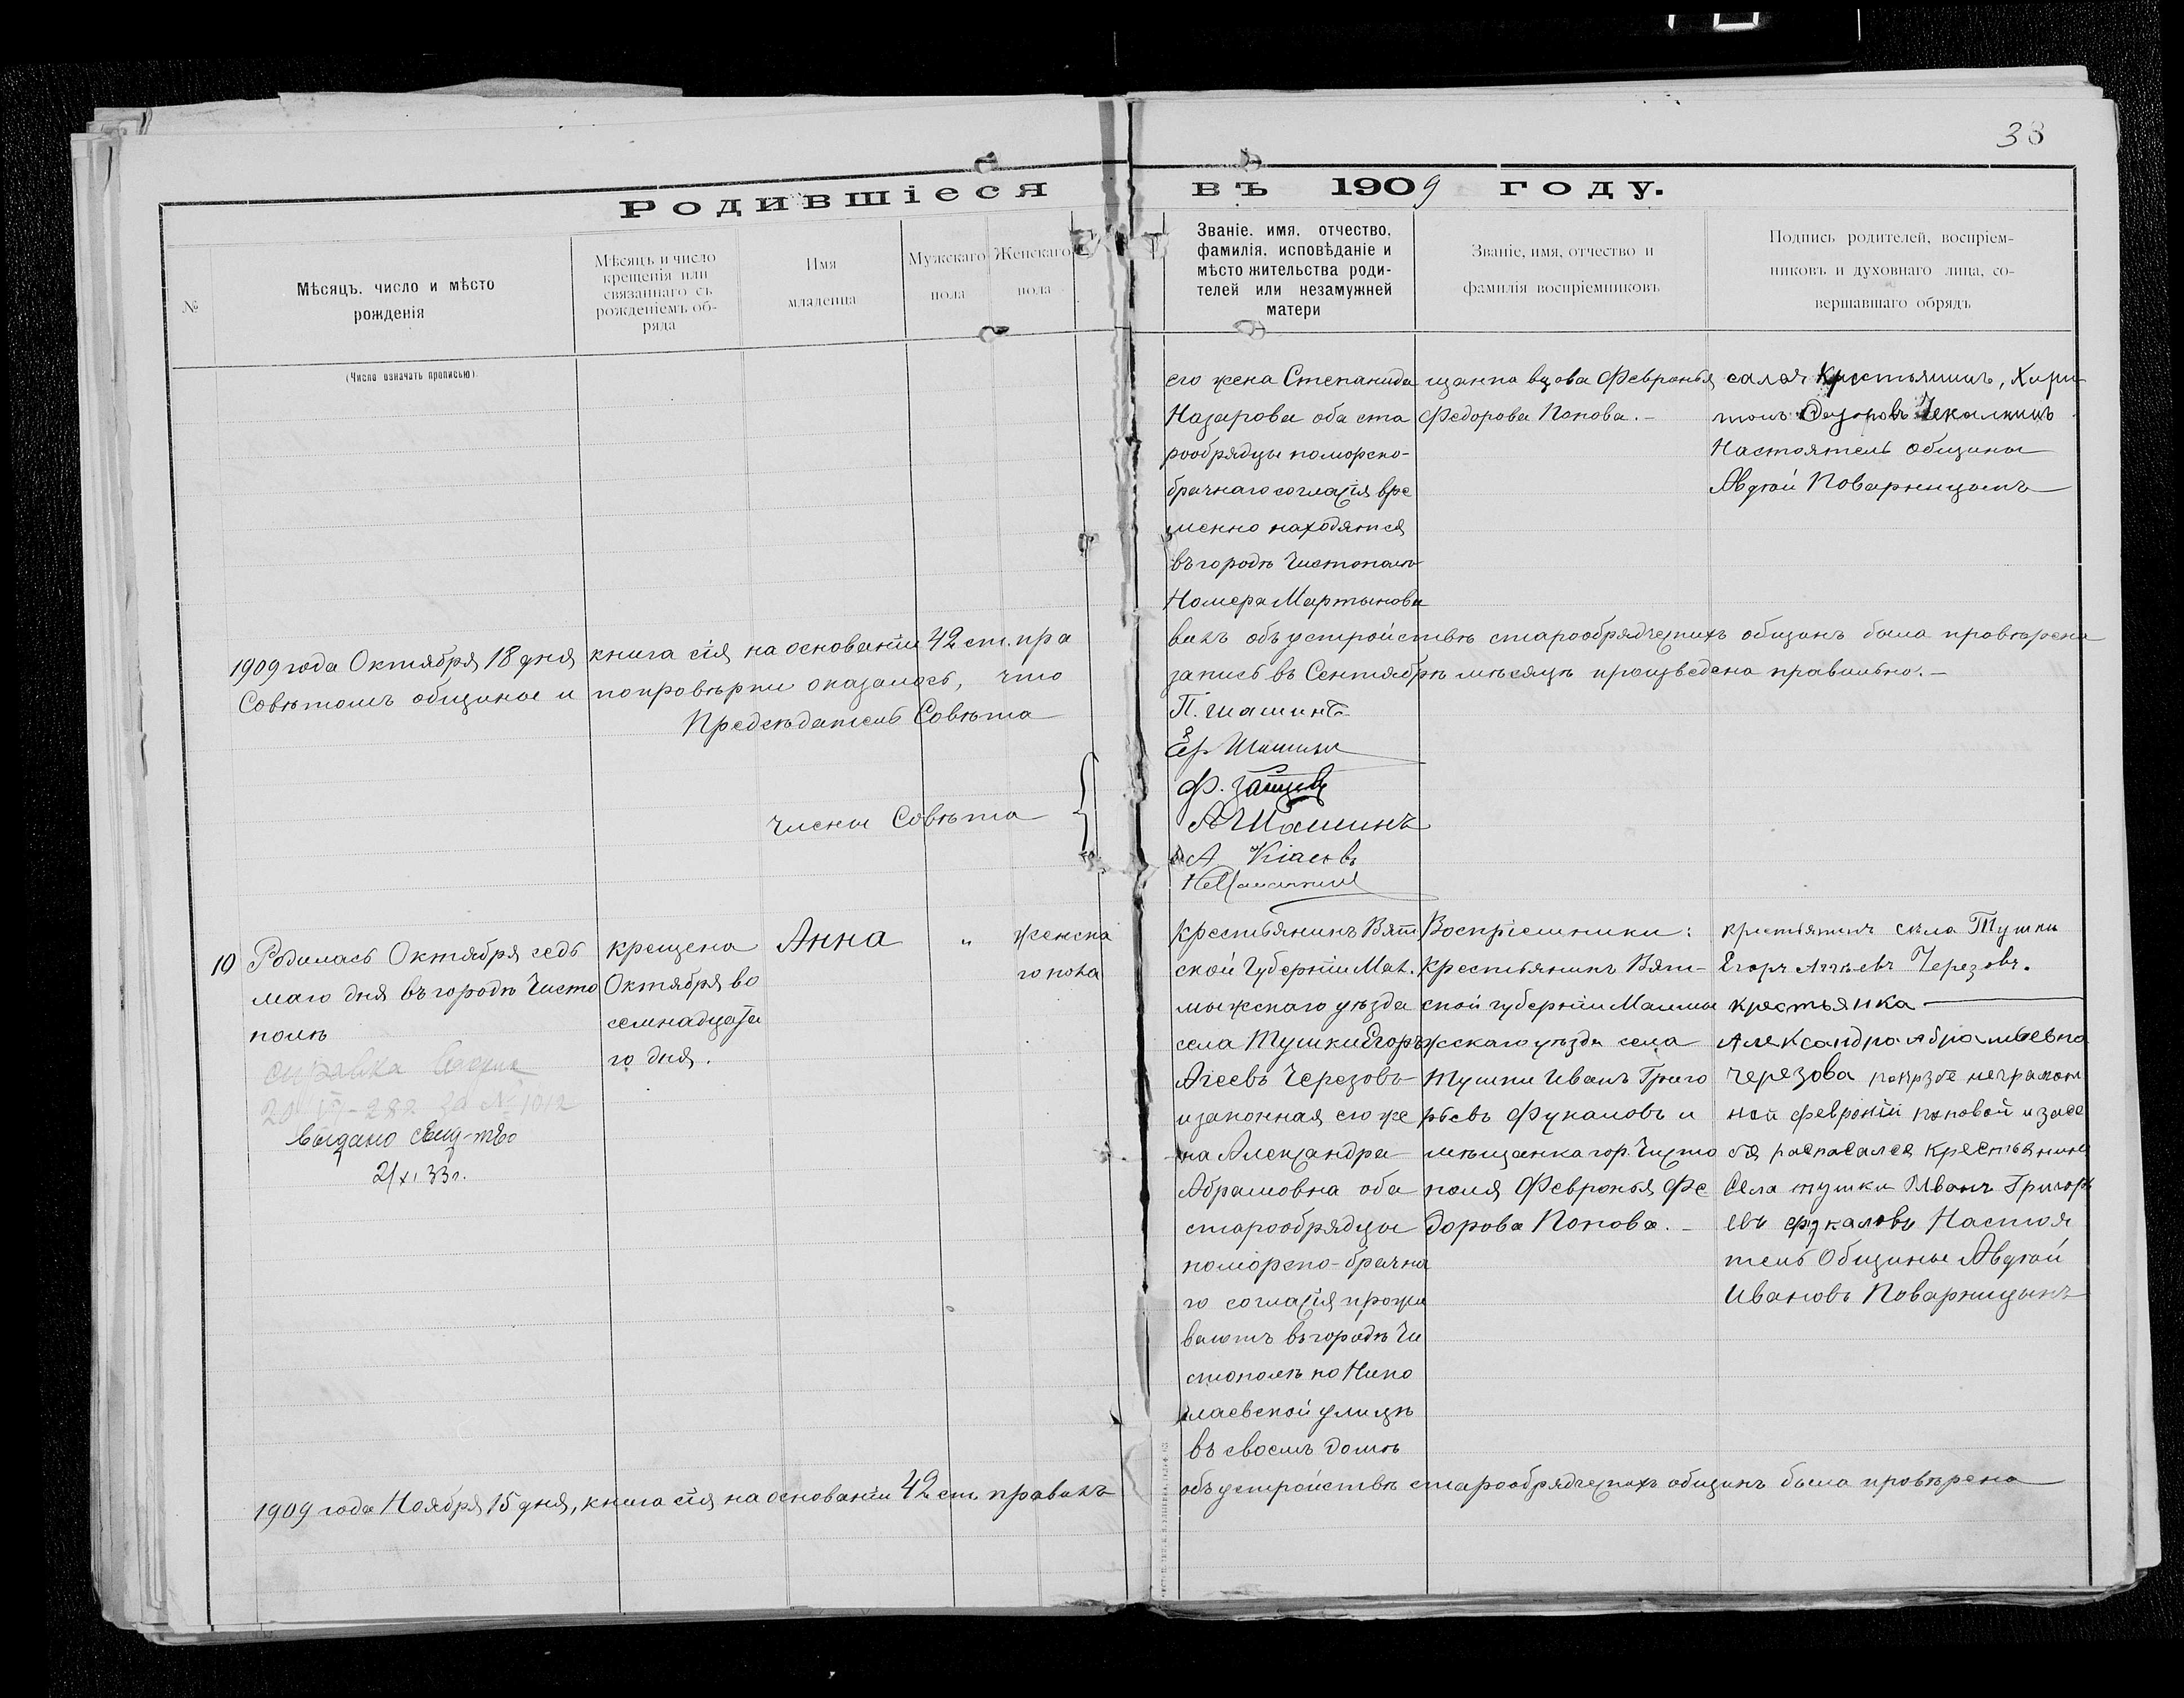 38
Родившіеся въ 1909 году.
№
Мѣсяцъ, число и мѣсто
рожденія
Мѣсяцъ и число
крещенія или
связаннаго съ
рожденіемъ об-
ряда
Имя
младенца
Мужскаго
пола
Женскаго
пола
Званіе, имя, отчество,
фамилія, исповѣданіе и
мѣсто жительства роди-
телей или незамужней
матери
Званіе, имя, отчество и
фамилія воспріемниковъ
Подпись родителей, воспріем-
никовъ и духовнаго лица, со-
вершавшаго обрядъ
(Число означать прописью).
его жена Степанида
Назарова оба ста
рообрядцы поморско-
брачнаго согласія вре
менно находятся
въ городѣ Чистополѣ
Номера Мартынова
щанка вдова Февронья
Федорова Попова.-
Крестьянинъ, Хари
тонъ Чекалкинъ
Настоятель общины
Авдѣй Поварницынъ
1909 года Октября 18 дня книга сія на основаніи 42 ст. пра
вилъ объ устройствѣ старообрядческихъ общинъ была провѣрена
Совѣтомъ общины и попровѣрки оказалось, что
запись въ Сентябрѣ мѣсяцѣ произведена правильно.-
Предсѣдатель Совѣта
П. Шашинъ
Ер Шашинъ
Члены Совѣта
Ф. Зайцевъ
А Шашинъ
А
10
Родилась Октября седь
маго дня въ городѣ Чисто
полѣ
справка
№ 1012
Выдано свид-тво
2/XI 33 г.
крещена
Октября во
семнадцата
го дня.
Анна
"
женска
го пола
Крестьянинъ Вят
ской Губерніи Мал.
мыжскаго уѣзда
села Тушки Егоръ
Агеевъ Черезовъ
и законная его же
на Александра
Абрамовна оба
старообрядцы
поморско-брачна
го согласія прожи
ваютъ въ городѣ Чи
стополѣ по Нико
лаевской улицѣ
въ своемъ домѣ
Воспріемники:
Крестьянинъ Вят-
ской губерніи Малмы
жскаго уѣзда села
Тушки Иванъ Григо
рьевъ Фукаловъ и
мѣщанка гор. Чисто
поля Февронья Фе
дорова Попова.-
крестьянинъ села Тушки
Егоръ Агѣевъ Черезовъ.
крестьянка
Александра Абрамовна
Черезова неграмот
ной Февроніи Поповой и засе
бя расписался Крестьянинъ
Села тушки Иванъ Григорь
евъ Фукаловъ Настоя
тель Общины Авдѣй
Ивановъ Поварницынъ
1909 года Ноября 15 дня, книга сія на основаніи 42 ст. правилъ
объ устройствѣ старообрядческихъ общинъ была провѣрена